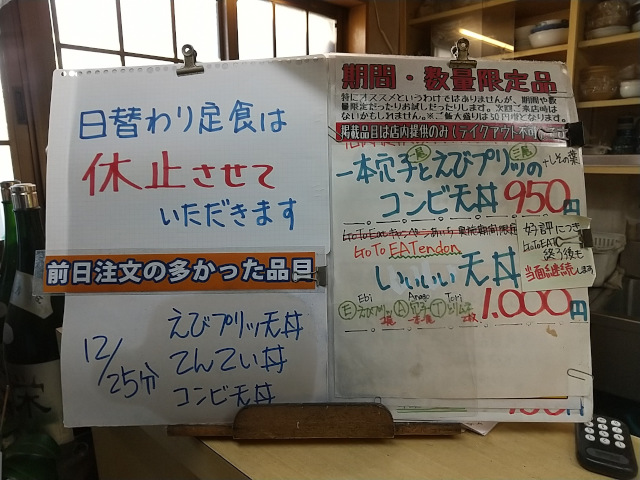 日替わり定食は
休止させて
いただきます
前日注文の多かった品目
12/25分
えびプリッ天丼
てんてい丼
コンビ天丼
期間・数量限定品
特にオススメというわけではありませんが、期間や数
量限定だったりお試しだったりします。次回ご来店時は
ないかもしれません。※ご飯大盛りは50円増となります。
掲載品目は店内提供のみ(テイクアウト不可)
一本穴子とえびプリッの
一尾 三尾 +しその葉
コンビ天丼 950円
GoToEATendon
いいいい天丼 1,000円
好評につき
GoToEAT
終了後も
当面継続します
Ebi Anago Tori
Ⓔえびプリッ Ⓐ穴子 Ⓣとりムネ
二尾 一本 二枚